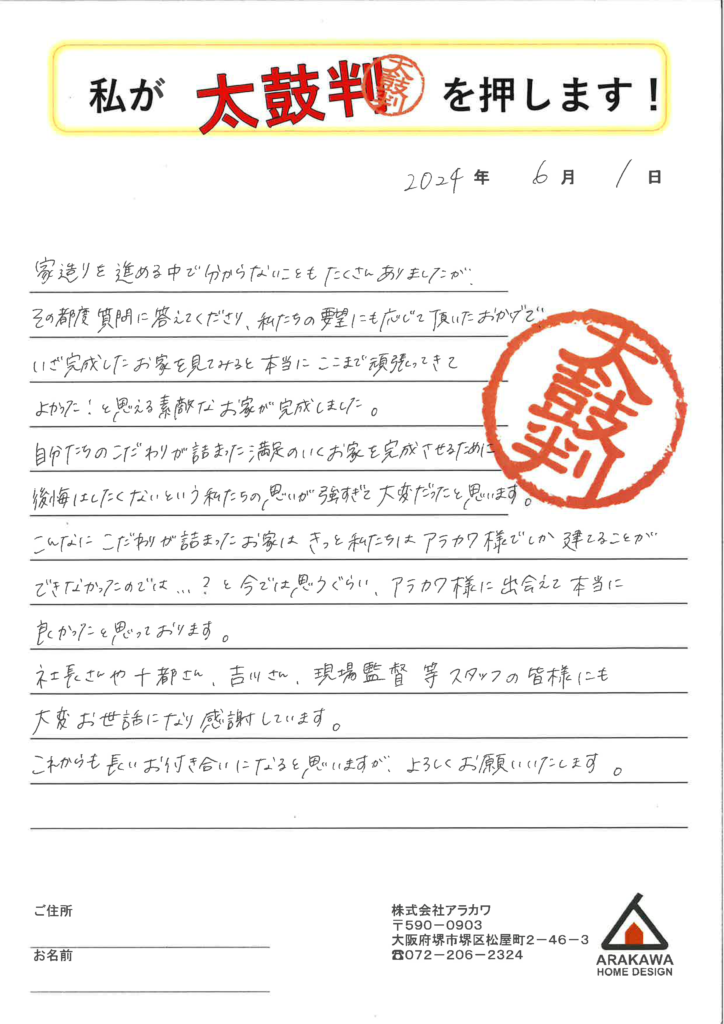 私が 太鼓判 太鼓判 を押します！
2024年 6月 1日
家造りを進める中で分からないこともたくさんありましたが、
その都度質問に答えてくださり、私たちの要望にも応じて頂いたおかげで
いざ完成したお家を見てみると本当にここまで頑張ってきて
よかった！と思える素敵なお家が完成しました。
太鼓判
自分たちのこだわりが詰まった満足のいくお家を完成させるために
後悔はしたくないという私たちの思いが強すぎて大変だったと思います。
こんなにこだわりが詰まったお家はきっと私たちはアラカワ様でしか建てることが
できなかったのでは…？と今では思うぐらい、アラカワ様に出会えて本当に
良かったと思っております。
社長さんや十都さん、吉川さん、現場監督等スタッフの皆様にも
大変お世話になり感謝しています。
これからも長いお付き合いになると思いますが、よろしくお願いいたします。
ご住所
お名前
株式会社アラカワ
〒590-0903
大阪府堺市堺区松屋町2-46-3
☎072-206-2324
ARAKAWA
HOME DESIGN